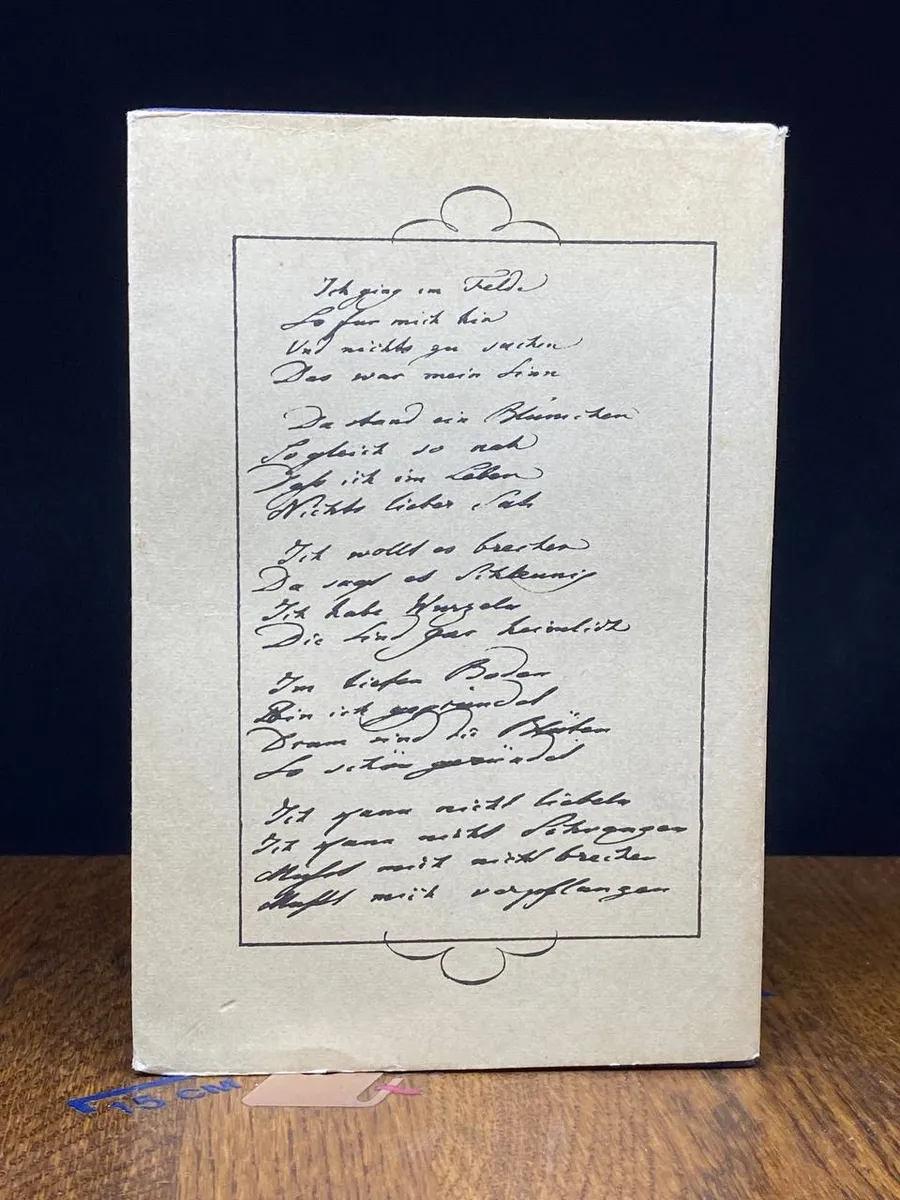 Ich ging im Felde
So fur mich hin
Und nichts zu suchen
Das war mein Sinn
Da stand ein Blümchen
Sogleich so nah
Daß ich im Leben
Nichts lieber Sah
Ich wollt es brechen
Da sagt es Schleunig
Ich habe Wurzeln
Die sind gar heimlich
Im tiefen Boden
Bin ich gegründet
Drum sind die Blüten
So schön geründet
Ich kann nicht liebeln
Ich kann nicht Schranzen
Mußt mich nicht brechen
Mußt mich verpflanzen
15 см